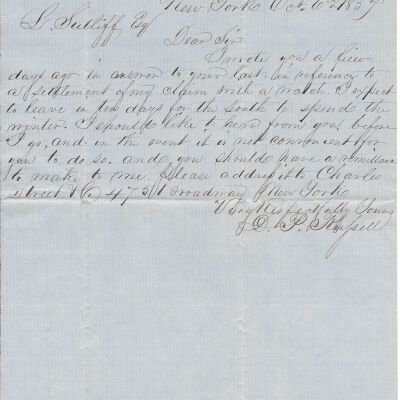 New York Oct 6th 1857
L. Sutliff, Esq
Dear Sir
I wrote you a few
days ago in answer to your last in reference to
a settlement of my claim with a watch. I expect
to leave in ten days for the South to spend the
winter. I should like to hear from you before
I go, and in the event it is not convenient for
you to do so. and you should have a remittance
to make to me please address it to Charlie
Street & Co 473 Broadway New York
Very Respectfully Yours
D. P.